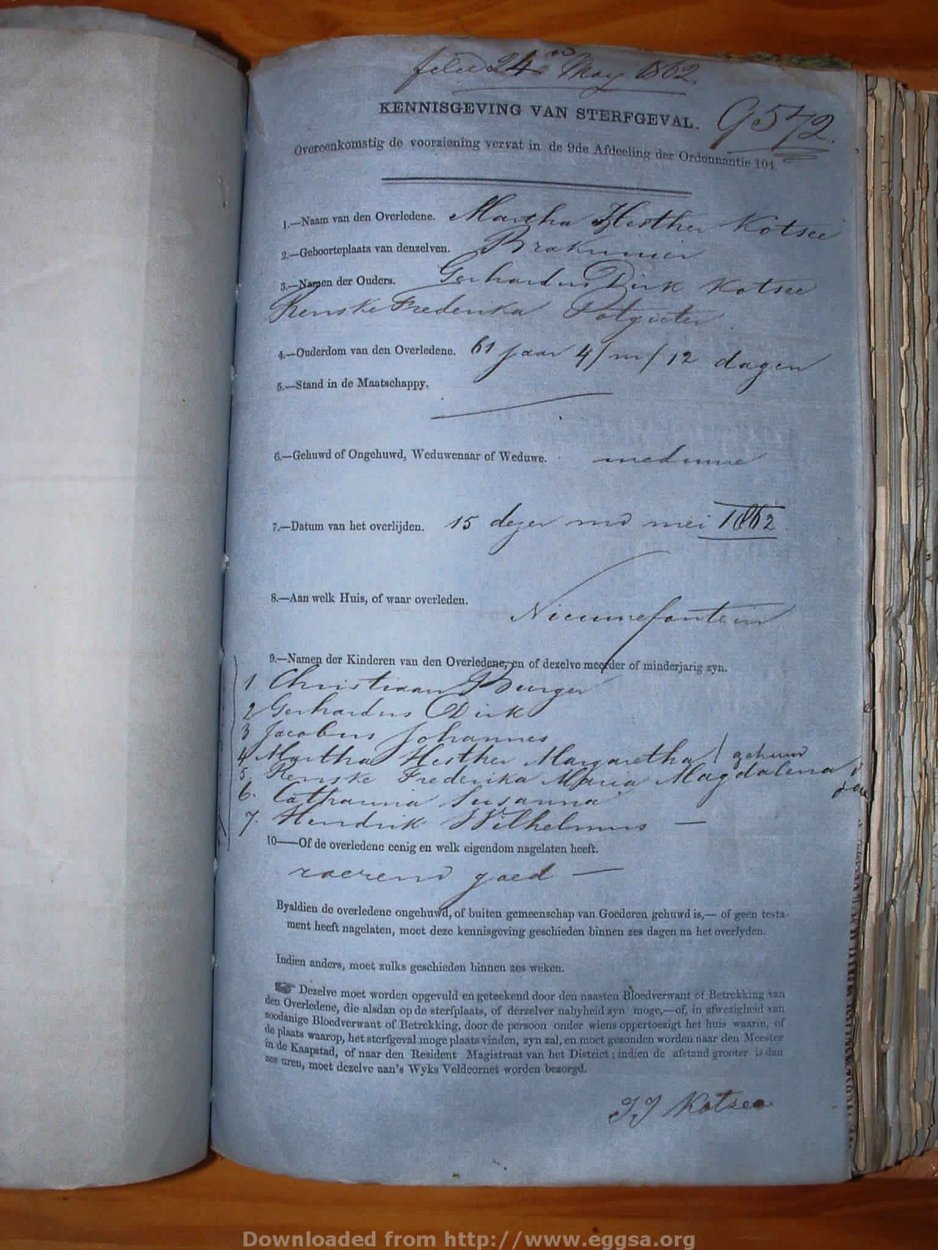 filed 24 May 1862
G 572
KENNISGEVING VAN STERFGEVAL.
Overeenkomstig de voorziening vervat in de 9de Afdeeling der Ordonnantie 104.
1.—Naam van den Overledene. Martha Hesther Kotsee
2.—Geboorteplaats van denzelven.
3.—Namen der Ouders. Gerhardus Dirk Kotsee
Renske Frederika Potgieter
4.—Ouderdom van den Overledene. 61 jaar 4/m/12 dagen
5.—Stand in de Maatschappy. —
6.—Gehuwd of Ongehuwd, Weduwenaar of Weduwe. weduwe
7.—Datum van het overlijden. 15 dezer mei 1862
8.—Aan welk Huis, of waar overleden. Nieuwefontein
9.—Namen der Kinderen van den Overledene, en of dezelve meerder of minderjarig zyn.
1 Christiaan Burger
2 Gerhardus Dirk
3 Jacobus Johannes
4 Martha Hesther Margaretha / gehuwd
5. Renske Frederika Maria Magdalena
6. Catharina Susanna
7. Hendrik Wilhelmus —
10—Of de overledene eenig en welk eigendom nagelaten heeft.
roerend goed —
Byaldien de overledene ongehuwd, of buiten gemeenschap van Goederen gehuwd is,— of geen testa-
ment heeft nagelaten, moet deze kennisgeving geschieden binnen zes dagen na het overlyden.
Indien anders, moet zulks geschieden binnen zes weken.
☞ Dezelve moet worden opgevuld en geteekend door den naasten Bloedverwant of Betrekking van
den Overledene, die alsdan op de sterfplaats, of derzelver nabyheid zyn moge,—of, in afwezigheid van
zoodanige Bloedverwant of Betrekking, door de persoon onder wiens oppertoezigt het huis waarin, of
de plaats waarop, het sterfgeval moge plaats vinden, zyn zal, en moet gezonden worden naar den Meester
in de Kaapstad, of naar den Resident Magistraat van het District; indien de afstand grooter is dan
zes uren, moet dezelve aan's Wyks Veldcornet worden bezorgd.
J J Kotzee
Downloaded from http://www.eggsa.org